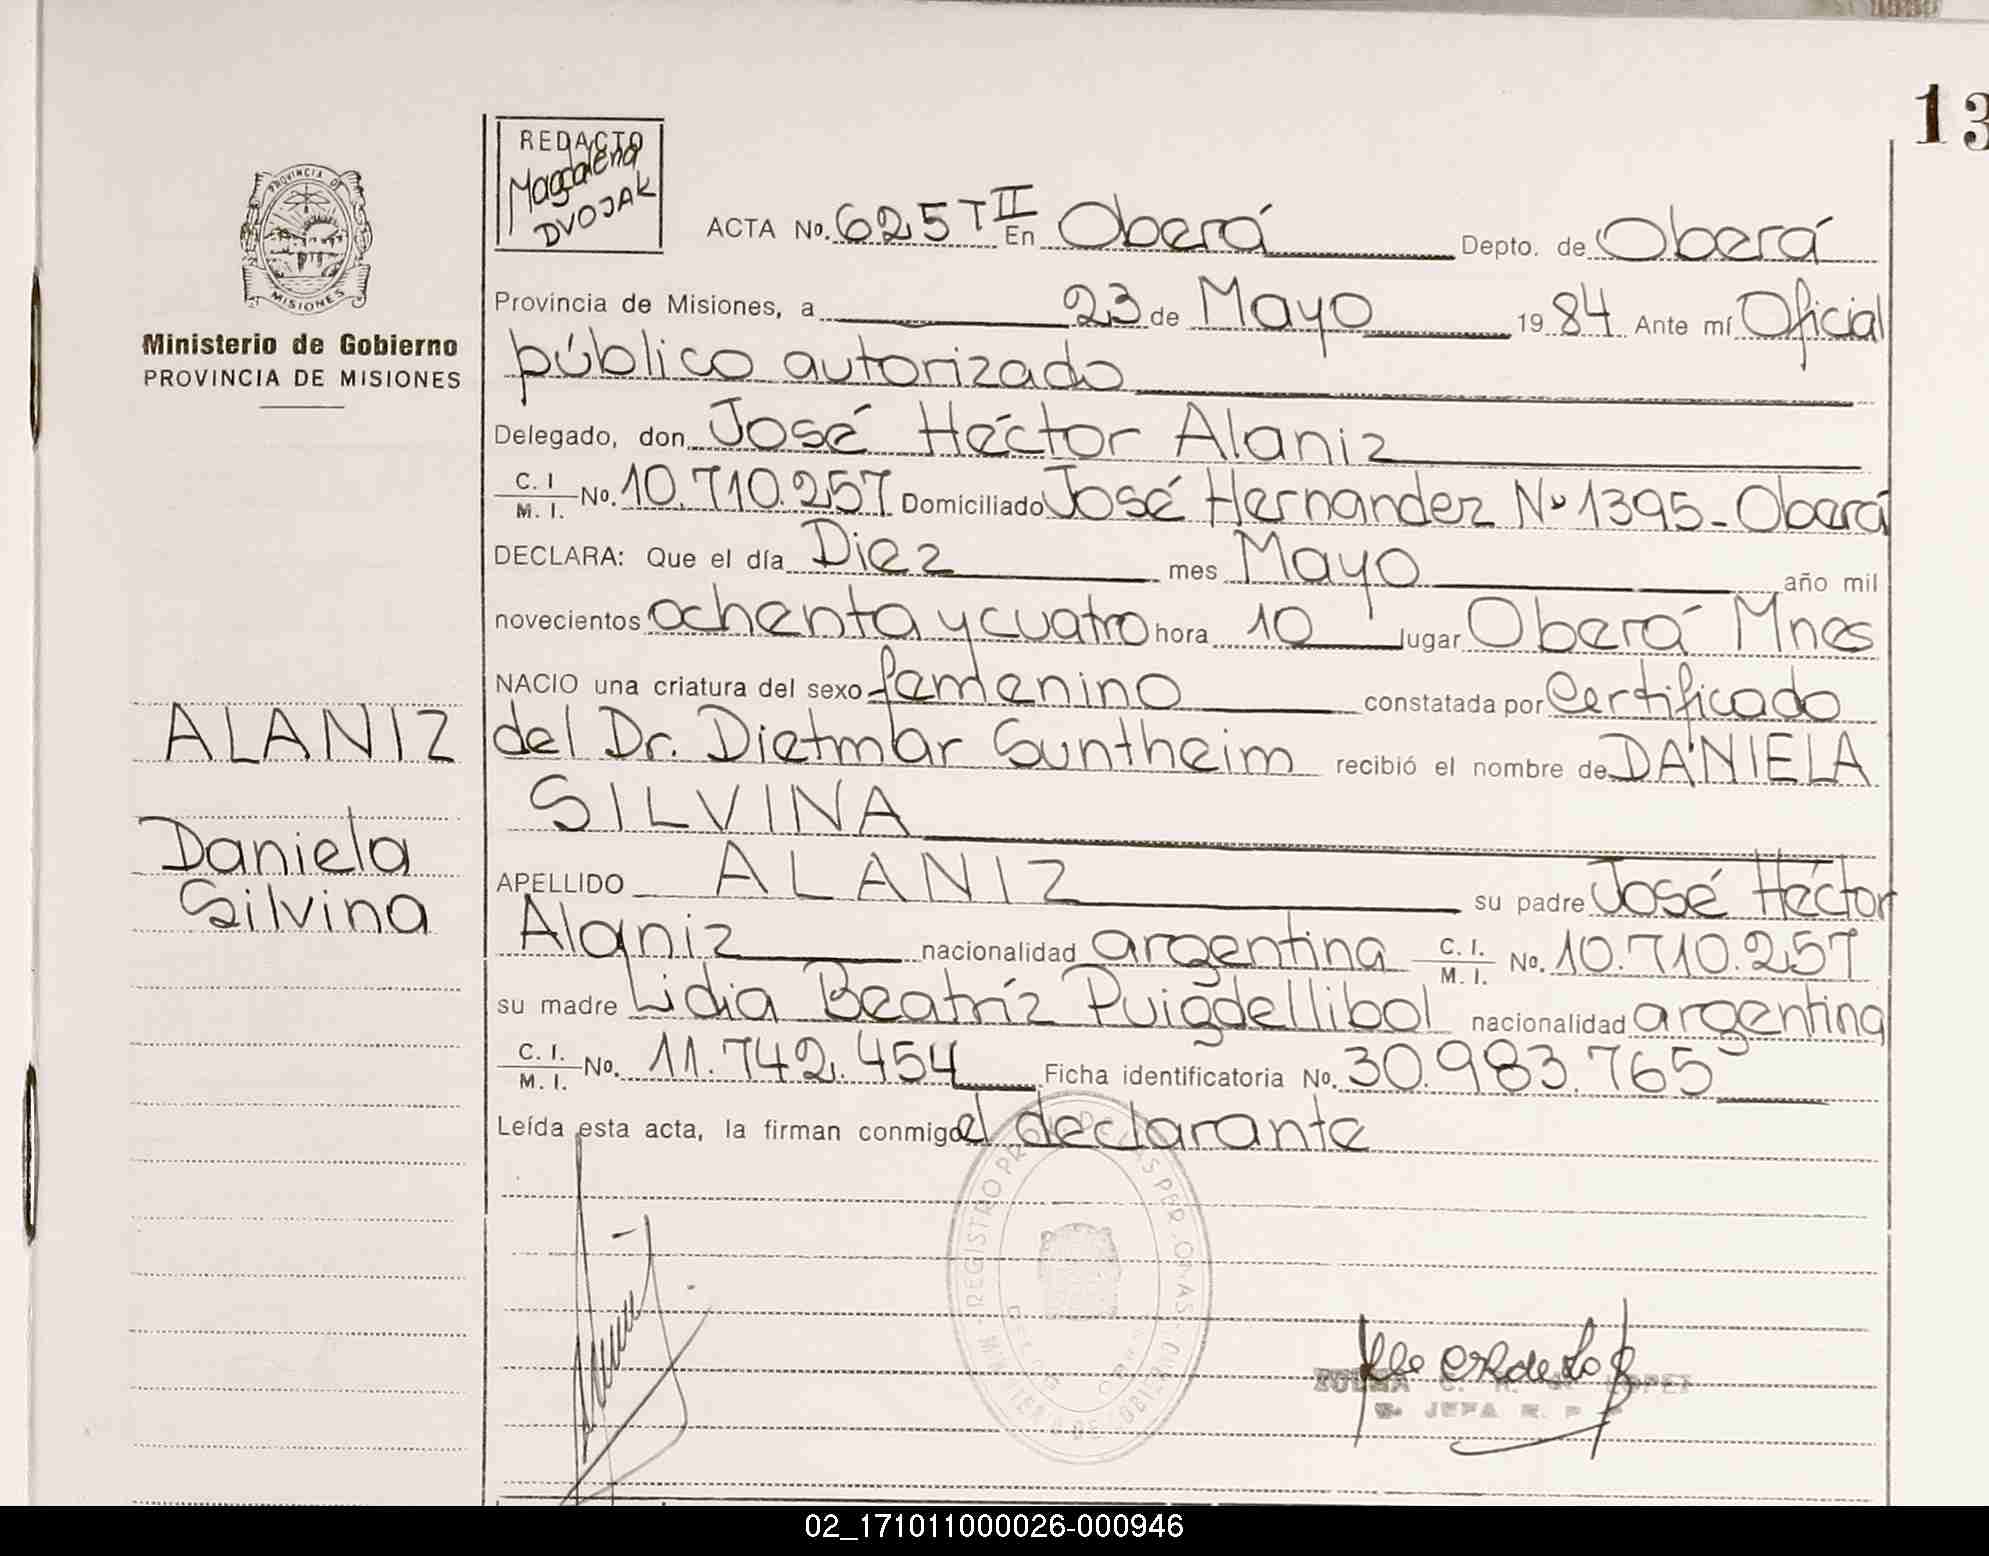 13
REDACTO
Magdalena
DVOJAK
PROVINCIA DE
MISIONES
Ministerio de Gobierno
PROVINCIA DE MISIONES
ACTA No. 625 T II En Oberá Depto. de Oberá
Provincia de Misiones, a 23 de Mayo 1984 Ante mí Oficial
público autorizado
Delegado, don José Héctor Alaniz
C. I / M. I. No. 10.710.257 Domiciliado José Hernandez Nº 1395 - Oberá
DECLARA: Que el día Diez mes Mayo año mil
novecientos ochenta y cuatro hora 10 lugar Oberá Mnes
NACIO una criatura del sexo femenino constatada por Certificado
del Dr. Dietmar Suntheim recibió el nombre de DANIELA
SILVINA
APELLIDO ALANIZ su padre José Héctor
Alaniz nacionalidad argentina C. I. / M. I. No. 10.710.257
su madre Lidia Beatríz Puigdellibol nacionalidad argentina
C. I. / M. I. No. 11.742.454 Ficha identificatoria No. 30.983.765
Leída esta acta, la firman conmigo el declarante
ALANIZ
Daniela
Silvina
ZULMA C. R. de LOPEZ
JEFA R. P.
02_171011000026-000946